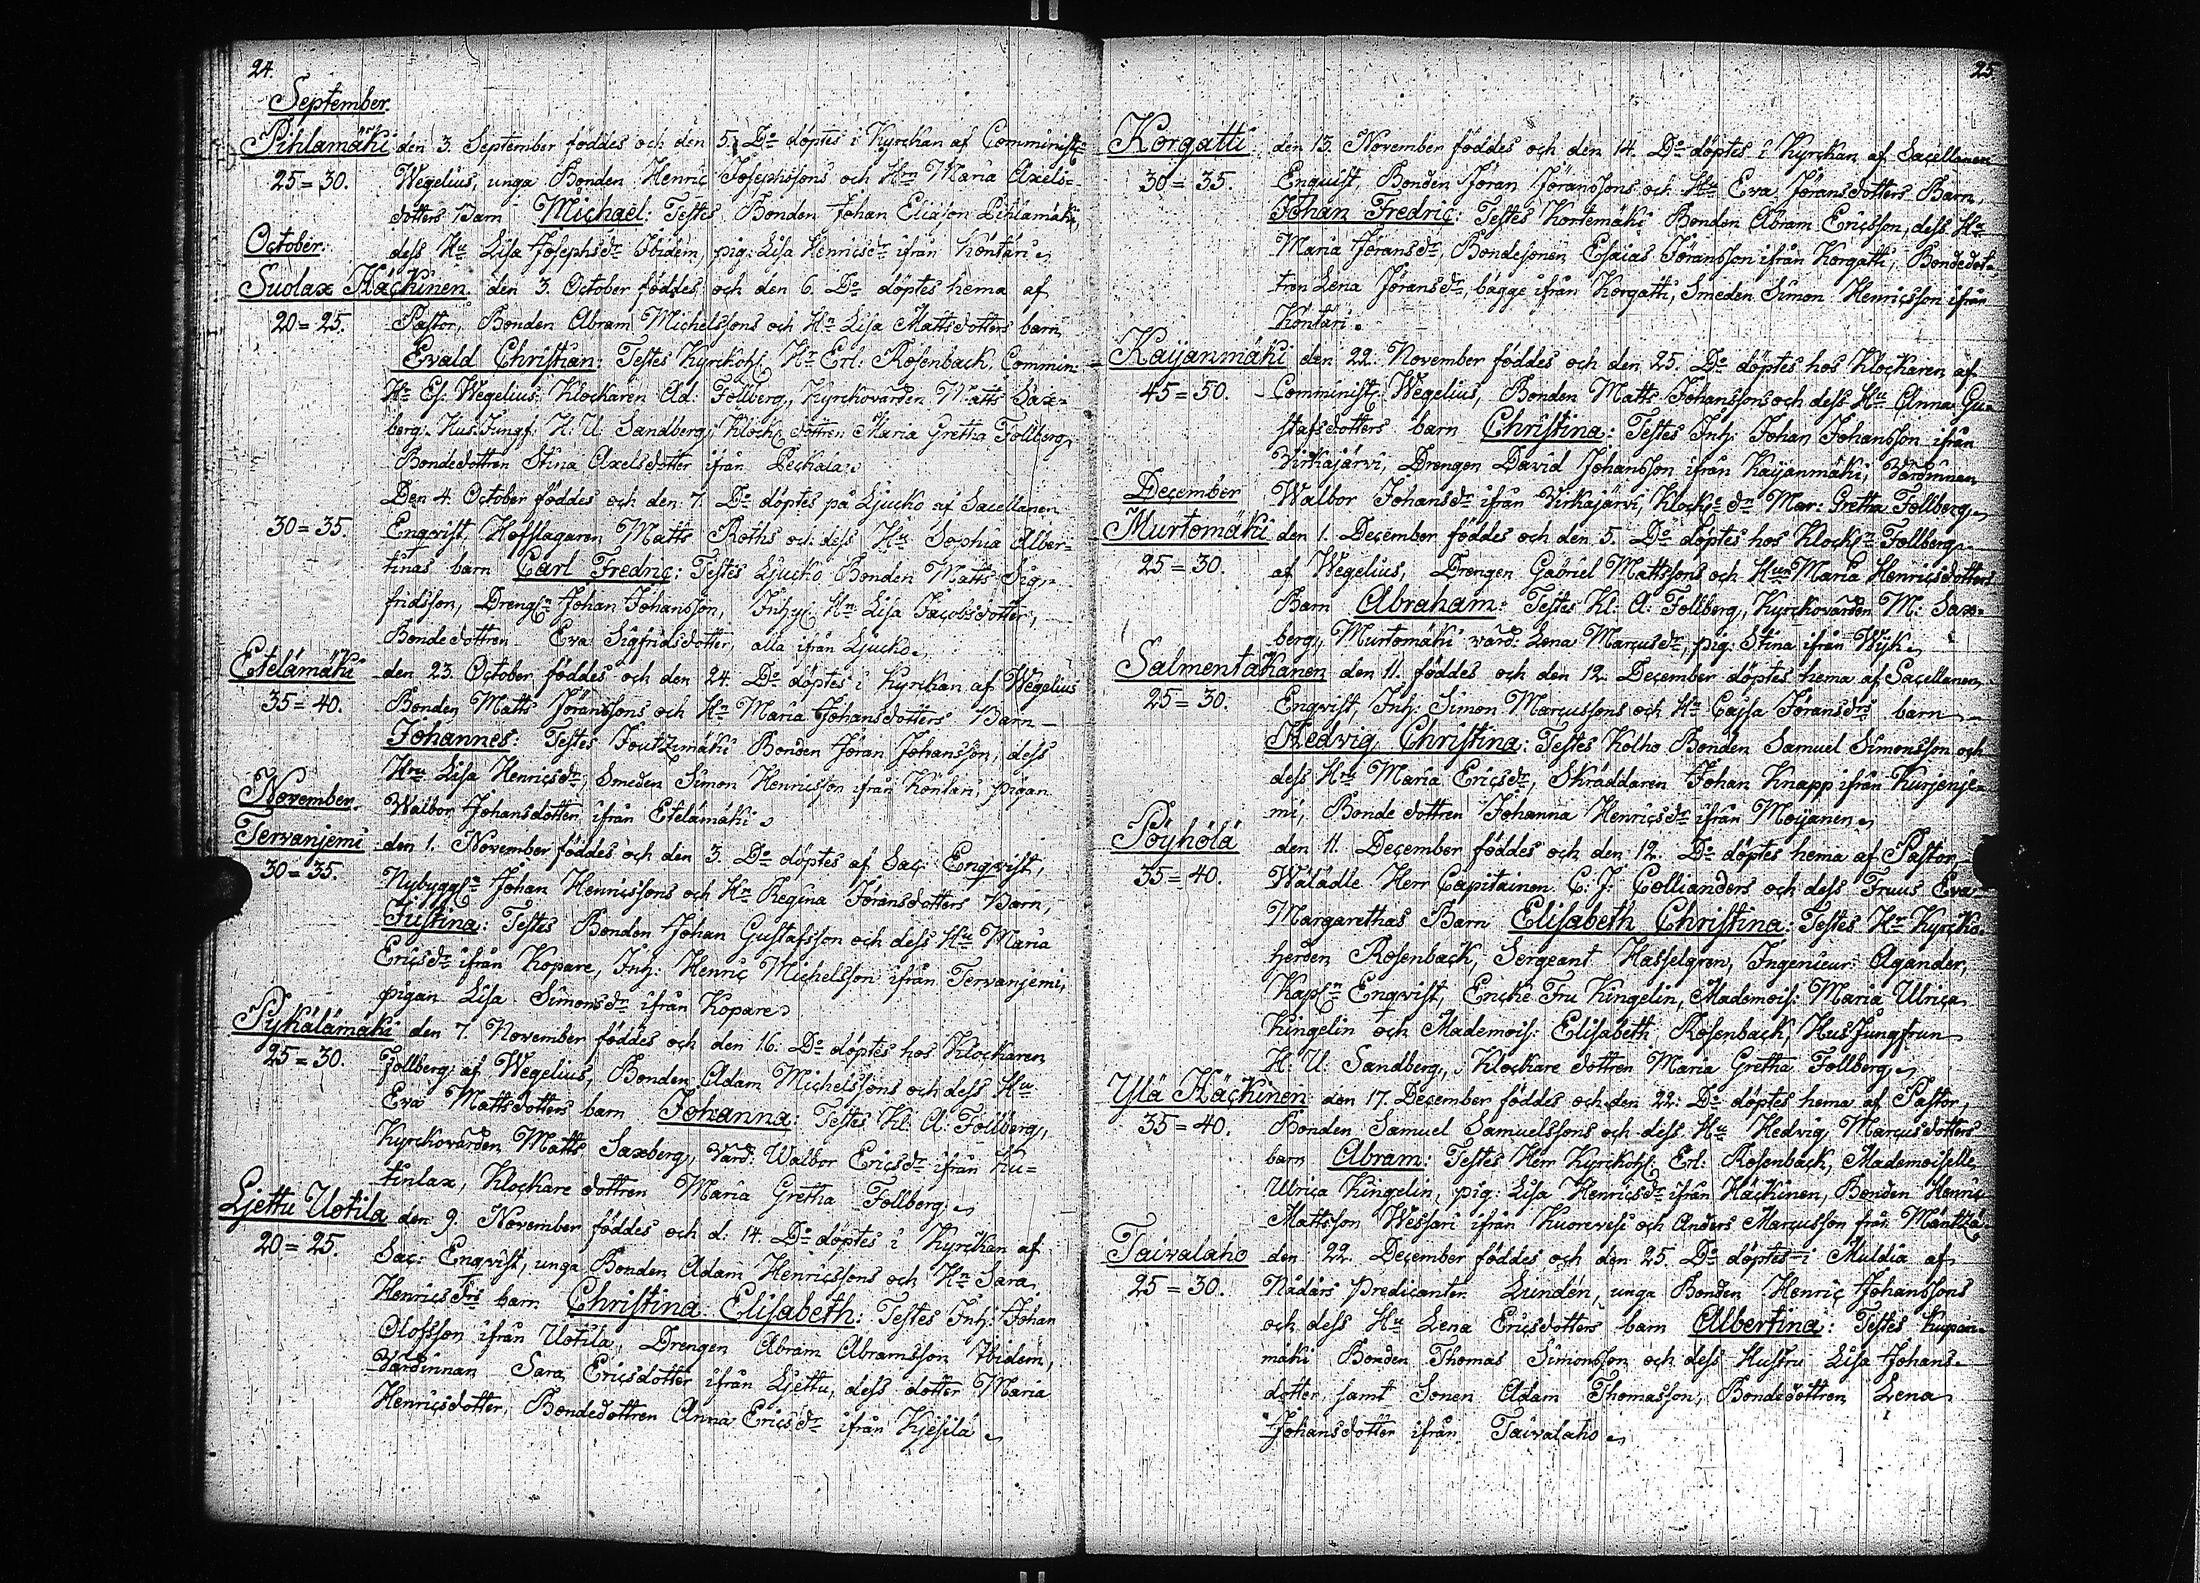 24.
September.
Pihlamäki den 3. September föddes och den 5. Do döptes i Kyrckan af Comminist:
25=30. Wegelius, unga Bonden Henric Josephssons och Hn Maria Axels=
dotters Barn Michaël: Testes Bonden Johan Eliasson Pihlamäki,
October. dess Hu Lisa Josephsdr Ibidem, pig: Lisa Henricsdr ifrån Köntäri
Suolax Häckinen den 3. October föddes och den 6. Do döptes hema af
20=25. Pastor, Bonden Abram Michelssons och Hn Lisa Mattsdotters barn
Evald Christian: Testes Kyrckoh. Hr Erl: Rosenback, Commin:
Hr Es: Wegelius, Klockaren Ad: Follberg, Kyrckovärden Matts Sax=
berg, Hus.Jungf: H: U: Sandberg, Klock: dottren Maria Gretha Follberg,
Bondedottren Stina Axelsdotter ifrån Peckala.
Den 4. October föddes och den 7. Do döptes på Ljucko af Sacellanen
30=35. Enqvist, Hofslagaren Matts Roths och dess Hu Sophia Alber=
tinas barn Carl Fredric: Testes Ljucko Bonden Matts Sig=
fridsson, Drengen Johan Johansson, Inhys: Hn Lisa Jacobsdotter,
Bondedottren Eva Sigfridsdotter, alla ifrån Ljucko.
Etelämäki den 23. October föddes och den 24. Do döptes i Kyrckan af Wegelius
35=40. Bonden Matts Jöranssons och Hn Maria Johansdotters Barn
Johannes: Testes Joutzimäki Bonden Jöran Johansson, dess
Hru Lisa Henricsdr, Smeden Simon Henricsson ifrån Köntäri, pigan
November. Walbor Johansdotter ifrån Etelämäki
Tervanjemi den 1. November föddes och den 3. Do döptes af Sac: Enqvist,
30=35. Nybygg. Johan Henricssons och Hn Regina Jöransdotters Barn,
Justina: Testes Bonden Johan Gustafsson och dess Hu Maria
Ericsdr ifrån Kopare, Inh: Henric Michelsson ifrån Tervanjemi,
pigan Lisa Simonsdr ifrån Kopare
Pykälämäki den 7. November föddes och den 16. Do döptes hos Klockaren
25=30. Follberg af Wegelius, Bonden Adam Michelssons och dess Hu
Eva Mattsdotters barn Johanna: Testes Kl: A: Follberg,
Kyrckovärden Matts Saxberg, Värd: Walbor Ericsdr ifrån Hu=
tinlax, Klockare dottren Maria Gretha Follberg
Ljettu Uotila den 9. November föddes och d: 14. Do döptes i Kyrckan af
20=25. Sac: Enqvist, unga Bonden Adam Henricssons och Hn Sara
Henricsdrs barn Christina Elisabeth: Testes Inh: Johan
Olofsson ifrån Uotila, Drengen Abram Abramsson Ibidem,
Värdinnan Sara Ericsdotter ifrån Ljettu, dess dotter Maria
Henricsdotter, Bondedottren Anna Ericsdr ifrån Kjesilä
25
Korgatti den 13. November föddes och den 14. Do döptes i Kyrckan af Sacellanen
30=35. Enquist, Bonden Jöran Jöranssons och Hu Eva Jöransdotters Barn,
Johan Fredric: Testes Kortemäki Bonden Abram Ericsson, dess Hu
Maria Jöransdr, Bondesonen Esaias Jöransson ifrån Korgatti, Bondedot=
tren Lena Jöransdr, bägge ifrån Korgatti, Smeden Simon Henricsson ifrån
Köntäri.
Kaijanmäki den 22. November föddes och den 25. Do döptes hos Klockaren af
45=50. Comminist: Wegelius, Bonden Matts Johanssons och dess Hu Anna Gu=
stafsdotters barn Christina: Testes Inh: Johan Johansson ifrån
Virkajärvi, Drengen David Johansson ifrån Kaijanmäki, Värdinnan
December Walbor Johansdr ifrån Virkajärvi, Klock: dr Mar: Gretha Follberg
Murtomäki den 1. December föddes och den 5. Do döptes hos Klock. Follberg
25=30. af Wegelius, Drengen Gabriel Mattssons och Hun Maria Henricsdotters
Barn Abraham: Testes Kl: A: Follberg, Kyrckovärden M: Sax=
berg, Murtomäki värd: Lena Marcusdr, pig: Stina ifrån Wijk
Salmentakanen den 11. föddes och den 12. December döptes hema af Sacellanen
25=30. Enqvist, Inh: Simon Marcussons och Hn Cajsa Jöransdrs barn
Hedvig Christina: Testes Kolho Bonden Samuel Simonsson och
dess Hru Maria Ericsdr, Skräddaren Johan Knapp ifrån Kurjenje=
mi, Bonde dottren Johanna Henricsdr ifrån Moijanen
Pöyhölä den 11. December föddes och den 12. Do döptes hema af Pastor,
35=40. Wälädle Herr Capitainen C: J: Collianders och dess Fruus Eva
Margarethas Barn Elisabeth Christina: Testes Hr Kyrcko=
herden Rosenback, Sergeant Hasselgren, Ingenieur: Agander,
Kapl. Enqvist, Encke Fru Kingelin, Mademois: Maria Ulrica
Kingelin och Mademois: Elisabeth Rosenback, HusJungfrun
H: U: Sandberg, Klockare dottren Maria Gretha Follberg
Ylä Häckinen den 17. December föddes och den 22. Do döptes hema af Pastor,
35=40. Bonden Samuel Samuelssons och dess Hu Hedvig Marcusdotters
barn Abram: Testes Herr Kyrckoh: Erl: Rosenback, Mademoiselle
Ulrica Kingelin, pig: Lisa Henricsdr ifrån Häckinen, Bonden Henric
Mattsson Wessari ifrån Kuorevesi och Anders Marcusson från Mänttzä
Taivalaho den 22. December föddes och den 25. Do döptes i Muldia af
25=30. Nådårs Predicanten Lundén, unga Bonden Henric Johanssons
och dess Hu Lena Ericsdotters barn Albertina: Testes Kupan=
mäki Bonden Thomas Simonsson och dess Hustru Lisa Johans=
dotter samt Sonen Adam Thomasson, Bondedottren Lena
Johansdotter ifrån Taivalaho